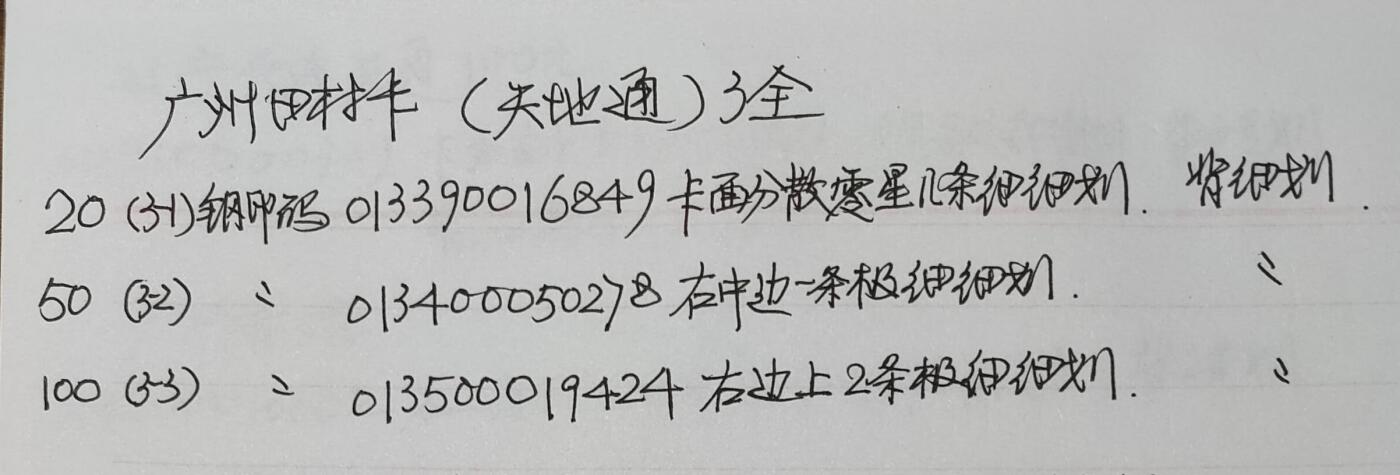 广州田村卡（天地通）3全
20（3-1）钢印码 013390016849 卡面分散零星几条细细划. 背细划.
50（3-2） 〃 013400050278 右中边一条极细细划. 〃
100（3-3） 〃 013500019424 右边上2条极细细划. 〃